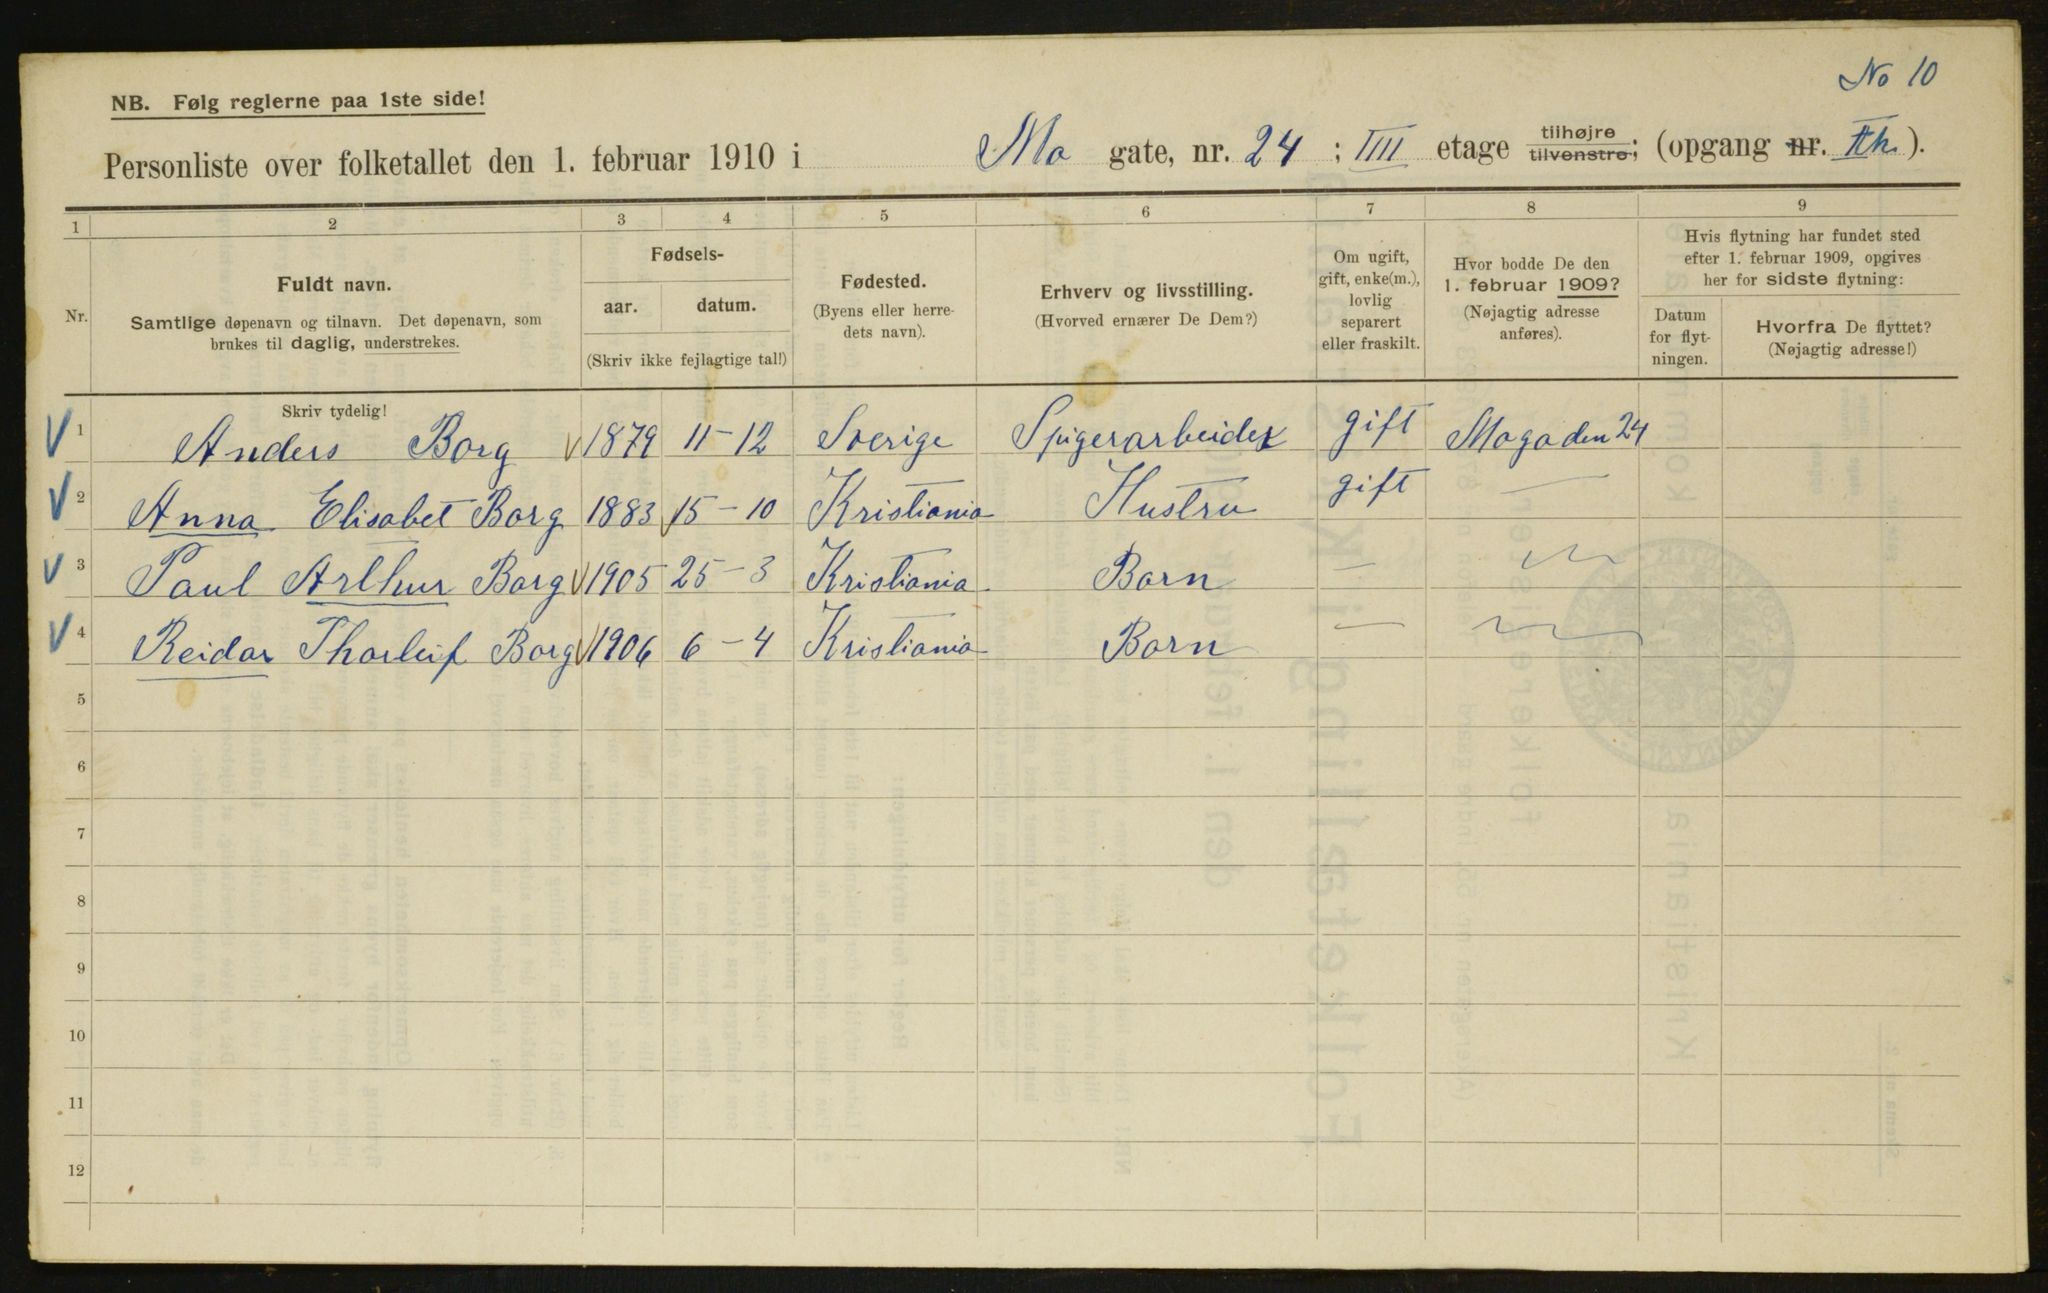 No 10
NB. Følg reglerne paa 1ste side!
Personliste over folketallet den 1. februar 1910 i Mo gate, nr. 24 ; IIII etage tilhøjre tilvenstre; (opgang nr. ).
1 2 3 4 5 6 7 8 9
Nr.
Fuldt navn.
Samtlige døpenavn og tilnavn. Det døpenavn, som
brukes til daglig, understrekes.
Fødsels-
aar. datum.
(Skriv ikke fejlagtige tal!)
Fødested.
(Byens eller herre-
dets navn).
Erhverv og livsstilling.
(Hvorved ernærer De Dem?)
Om ugift,
gift, enke(m.),
lovlig
separert
eller fraskilt.
Hvor bodde De den
1. februar 1909?
(Nøjagtig adresse
anføres).
Hvis flytning har fundet sted
efter 1. februar 1909, opgives
her for sidste flytning:
Datum
for flyt-
ningen.
Hvorfra De flyttet?
(Nøjagtig adresse!)
Skriv tydelig!
1 Anders Borg 1879 11-12 Sverige Spigerarbeider gift Mogaden 24
2 Anna Elisabet Borg 1883 15-10 Kristiania Hustru gift —
3 Paul Arthur Borg 1905 25-3 Kristiania Barn —
4 Reidar Thorleif Borg 1906 6-4 Kristiania Barn —
5
6
7
8
9
10
11
12